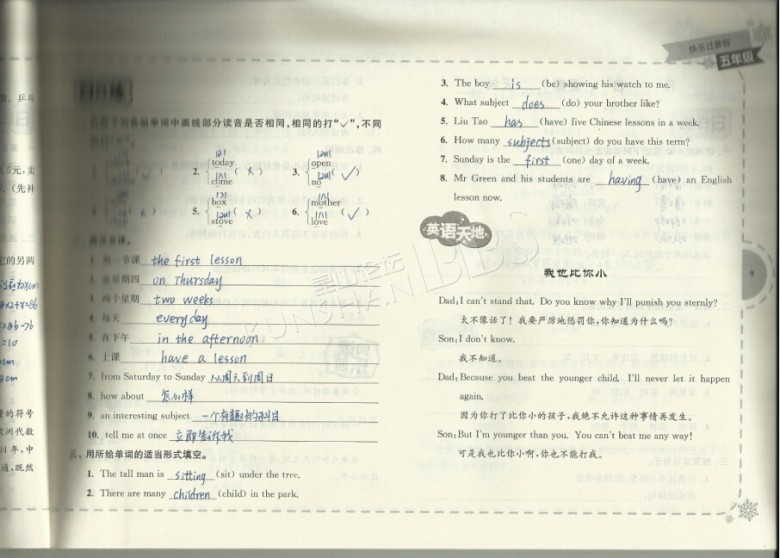 快乐过暑假
五年级
列各组单词中画线部分读音是否相同,相同的打“✓”,不同
today
2. come ( × )
open
3. no ( ✓ )
box
5. stove ( × )
mother
6. love ( ✓ )
1. 第一节课 the first lesson
2. 在星期四 on Thursday
3. 两个星期 two weeks
4. 每天 everyday
5. 在下午 in the afternoon
6. 上课 have a lesson
7. from Saturday to Sunday 从周六到周日
8. how about 怎么样
9. an interesting subject 一个有趣的科目
10. tell me at once 立即告诉我
三、用所给单词的适当形式填空。
1. The tall man is sitting (sit) under the tree.
2. There are many children (child) in the park.
3. The boy is (be) showing his watch to me.
4. What subject does (do) your brother like?
5. Liu Tao has (have) five Chinese lessons in a week.
6. How many subjects (subject) do you have this term?
7. Sunday is the first (one) day of a week.
8. Mr Green and his students are having (have) an English
lesson now.
英语天地
我也比你小
Dad: I can't stand that. Do you know why I'll punish you sternly?
太不像话了!我要严厉地惩罚你,你知道为什么吗?
Son: I don't know.
我不知道。
Dad: Because you beat the younger child. I'll never let it happen
again.
因为你打了比你小的孩子,我绝不允许这种事情再发生。
Son: But I'm younger than you. You can't beat me any way!
可是我也比你小啊,你也不能打我。
9
KUNSHAN BBS